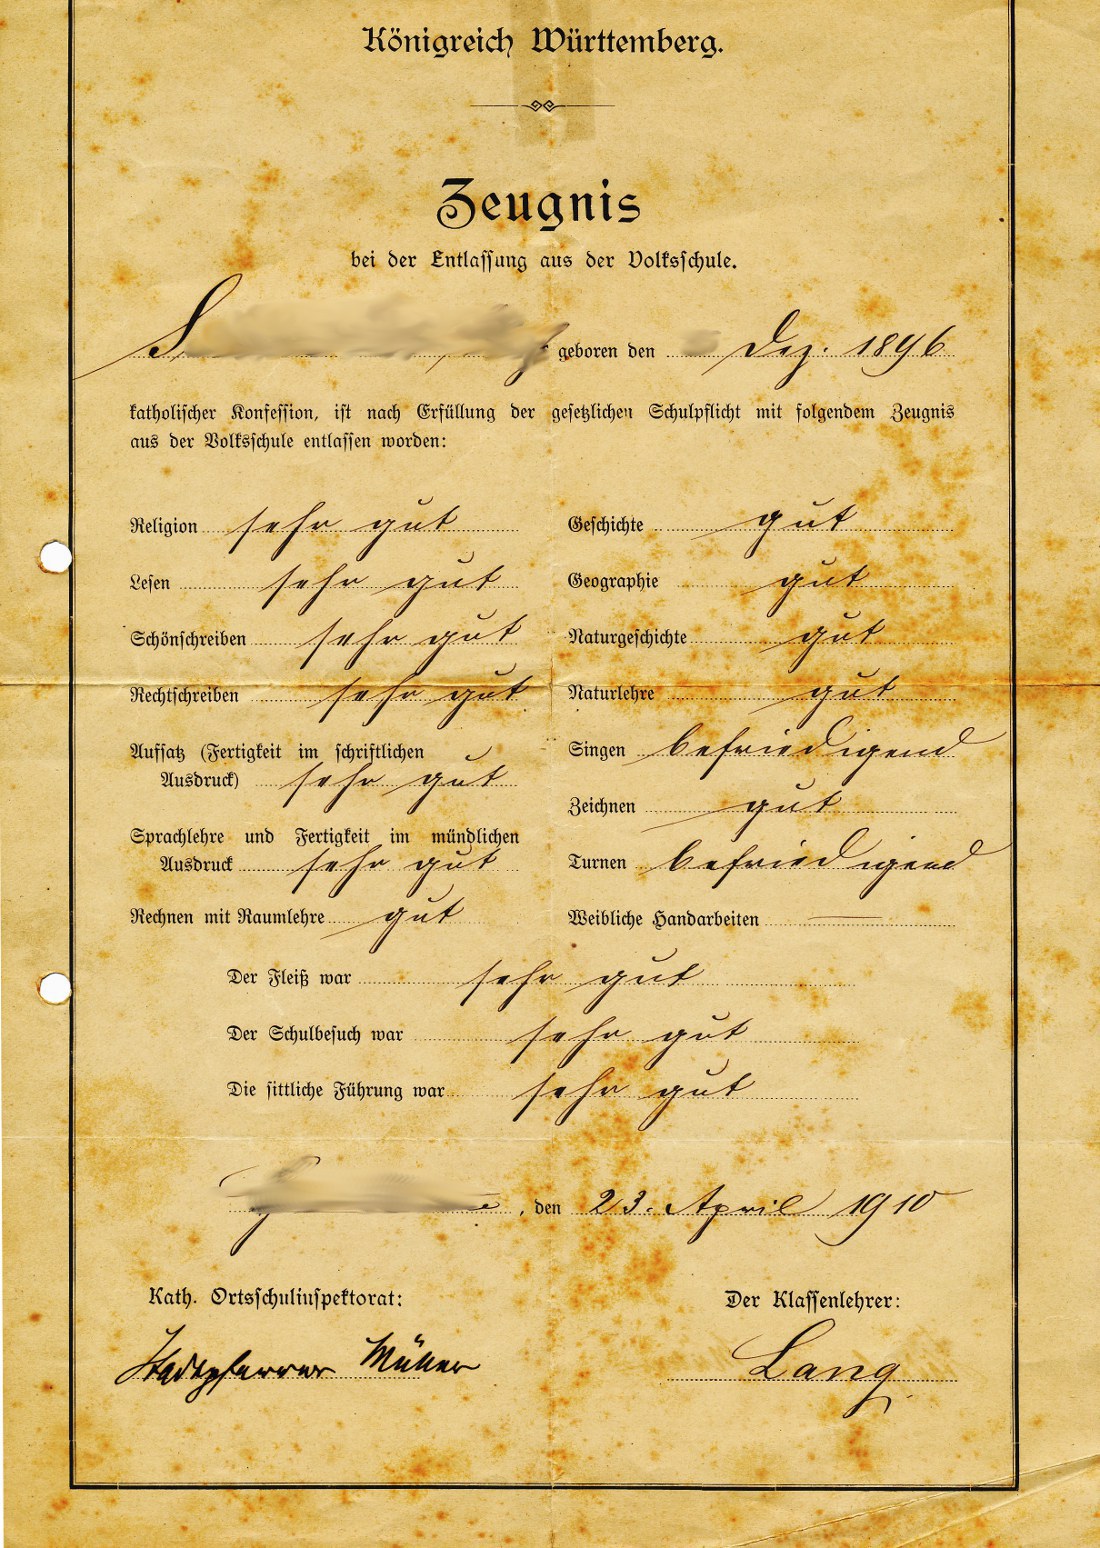 Königreich Württemberg.
Zeugnis
bei der Entlassung aus der Volksschule.
geboren den Dez. 1896
katholischer Konfession, ist nach Erfüllung der gesetzlichen Schulpflicht mit folgendem Zeugnis
aus der Volksschule entlassen worden:
Religion sehr gut
Lesen sehr gut
Schönschreiben sehr gut
Rechtschreiben sehr gut
Aufsatz (Fertigkeit im schriftlichen
Ausdruck) sehr gut
Sprachlehre und Fertigkeit im mündlichen
Ausdruck sehr gut
Rechnen mit Raumlehre gut
Geschichte gut
Geographie gut
Naturgeschichte gut
Naturlehre gut
Singen befriedigend
Zeichnen gut
Turnen befriedigend
Weibliche Handarbeiten —
Der Fleiß war sehr gut
Der Schulbesuch war sehr gut
Die sittliche Führung war sehr gut
, den 23. April 1910
Kath. Ortsschulinspektorat:
Stadtpfarrer Müller
Der Klassenlehrer:
Lang.